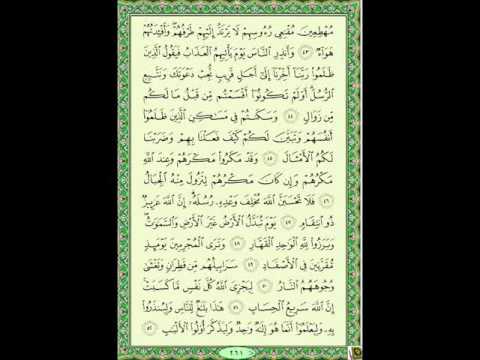 مُهْطِعِينَ مُقْنِعِي رُءُوسِهِمْ لَا يَرْتَدُّ إِلَيْهِمْ طَرْفُهُمْ وَأَفْـِٔدَتُهُمْ
هَوَآءٌ ٤٣ وَأَنذِرِ ٱلنَّاسَ يَوْمَ يَأْتِيهِمُ ٱلْعَذَابُ فَيَقُولُ ٱلَّذِينَ
ظَلَمُوا۟ رَبَّنَآ أَخِّرْنَآ إِلَىٰٓ أَجَلٍ قَرِيبٍ نُّجِبْ دَعْوَتَكَ وَنَتَّبِعِ
ٱلرُّسُلَ أَوَلَمْ تَكُونُوٓا۟ أَقْسَمْتُم مِّن قَبْلُ مَا لَكُم
مِّن زَوَالٍ ٤٤ وَسَكَنتُمْ فِي مَسَـٰكِنِ ٱلَّذِينَ ظَلَمُوٓا۟
أَنفُسَهُمْ وَتَبَيَّنَ لَكُمْ كَيْفَ فَعَلْنَا بِهِمْ وَضَرَبْنَا
لَكُمُ ٱلْأَمْثَالَ ٤٥ وَقَدْ مَكَرُوا۟ مَكْرَهُمْ وَعِندَ ٱللَّهِ
مَكْرُهُمْ وَإِن كَانَ مَكْرُهُمْ لِتَزُولَ مِنْهُ ٱلْجِبَالُ
٤٦ فَلَا تَحْسَبَنَّ ٱللَّهَ مُخْلِفَ وَعْدِهِۦ رُسُلَهُۥٓ إِنَّ ٱللَّهَ عَزِيزٌ
ذُو ٱنتِقَامٍ ٤٧ يَوْمَ تُبَدَّلُ ٱلْأَرْضُ غَيْرَ ٱلْأَرْضِ وَٱلسَّمَـٰوَٰتُ
وَبَرَزُوا۟ لِلَّهِ ٱلْوَٰحِدِ ٱلْقَهَّارِ ٤٨ وَتَرَى ٱلْمُجْرِمِينَ يَوْمَئِذٍ
مُّقَرَّنِينَ فِي ٱلْأَصْفَادِ ٤٩ سَرَابِيلُهُم مِّن قَطِرَانٍ وَتَغْشَىٰ
وُجُوهَهُمُ ٱلنَّارُ ٥٠ لِيَجْزِيَ ٱللَّهُ كُلَّ نَفْسٍ مَّا كَسَبَتْ
إِنَّ ٱللَّهَ سَرِيعُ ٱلْحِسَابِ ٥١ هَـٰذَا بَلَـٰغٌ لِّلنَّاسِ وَلِيُنذَرُوا۟
بِهِۦ وَلِيَعْلَمُوٓا۟ أَنَّمَا هُوَ إِلَـٰهٌ وَٰحِدٌ وَلِيَذَّكَّرَ أُو۟لُوا۟ ٱلْأَلْبَـٰبِ ٥٢
٢٦١